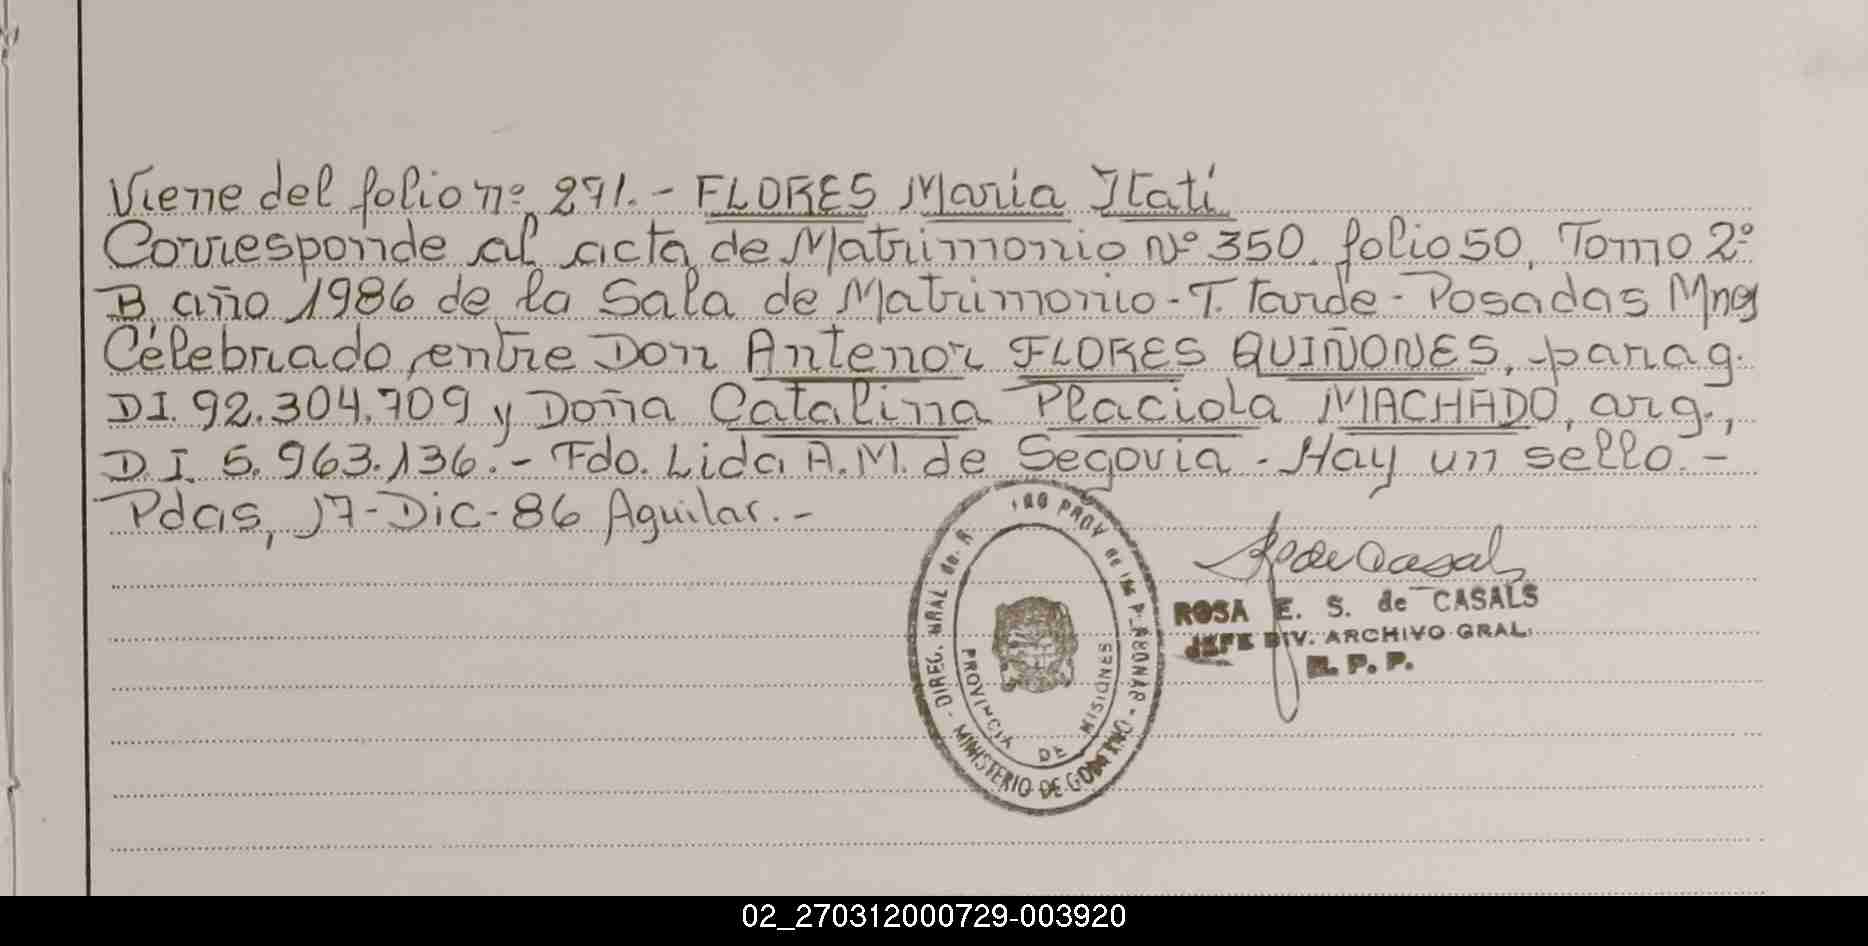 Viene del folio nº 271.- FLORES María Itatí
Corresponde al acta de Matrimonio Nº 350. folio 50, Tomo 2º
B año 1986 de la Sala de Matrimonio - T. Tarde - Posadas Mnes
Celebrado entre Don Antenor FLORES QUIÑONES, parag.
DI. 92.304.709 y Doña Catalina Placiola MACHADO, arg.,
D.I. 5.963.136.- Fdo. Lida A.M. de Segovia - Hay un sello.-
Pdas, 17-Dic-86 Aguilar.-
DIREC. GRAL de PROV de las PERSONAS - MINISTERIO DE GOBIERNO -
PROVINCIA DE MISIONES
ROSA E. S. de CASALS
JEFE DIV. ARCHIVO GRAL.
R. P. P.
02_270312000729-003920